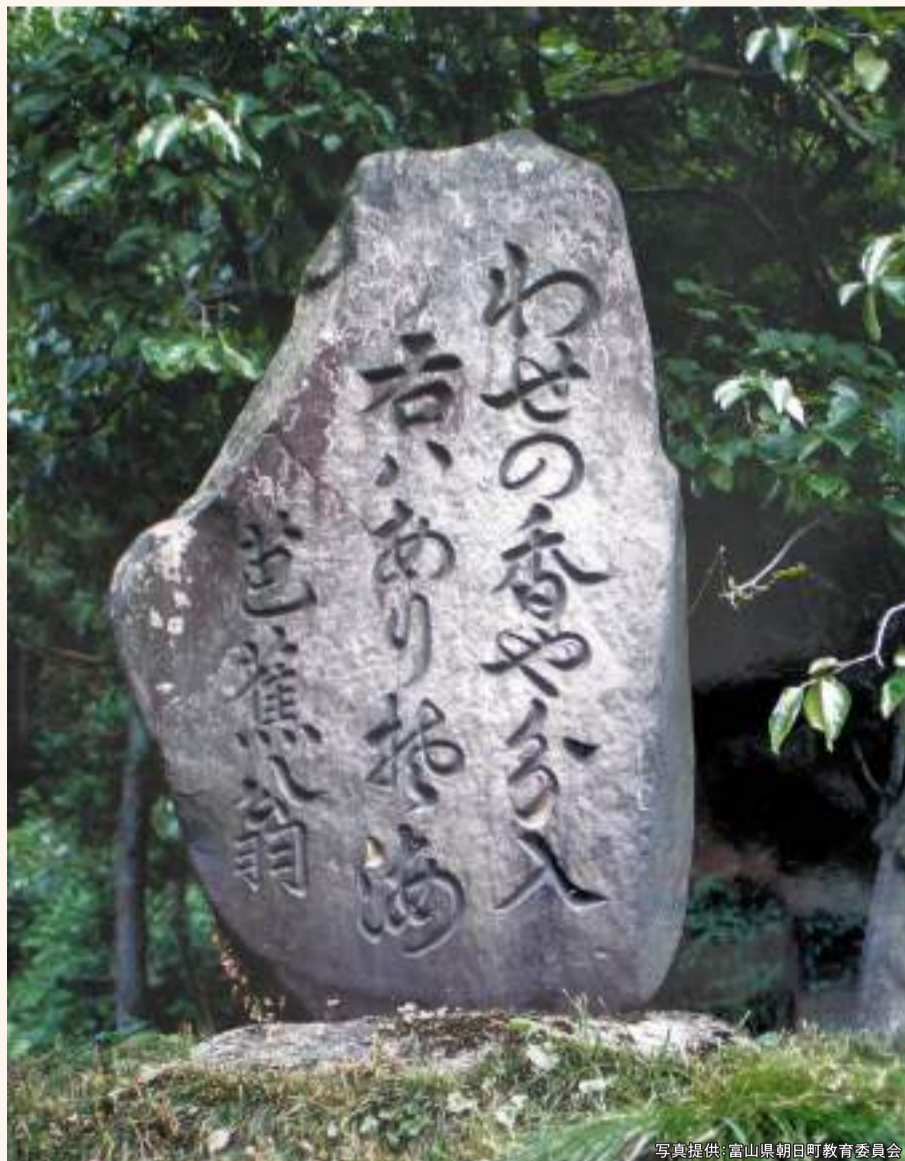 わせの香や分入
右ハあり楚海
芭蕉翁
写真提供:富山県朝日町教育委員会